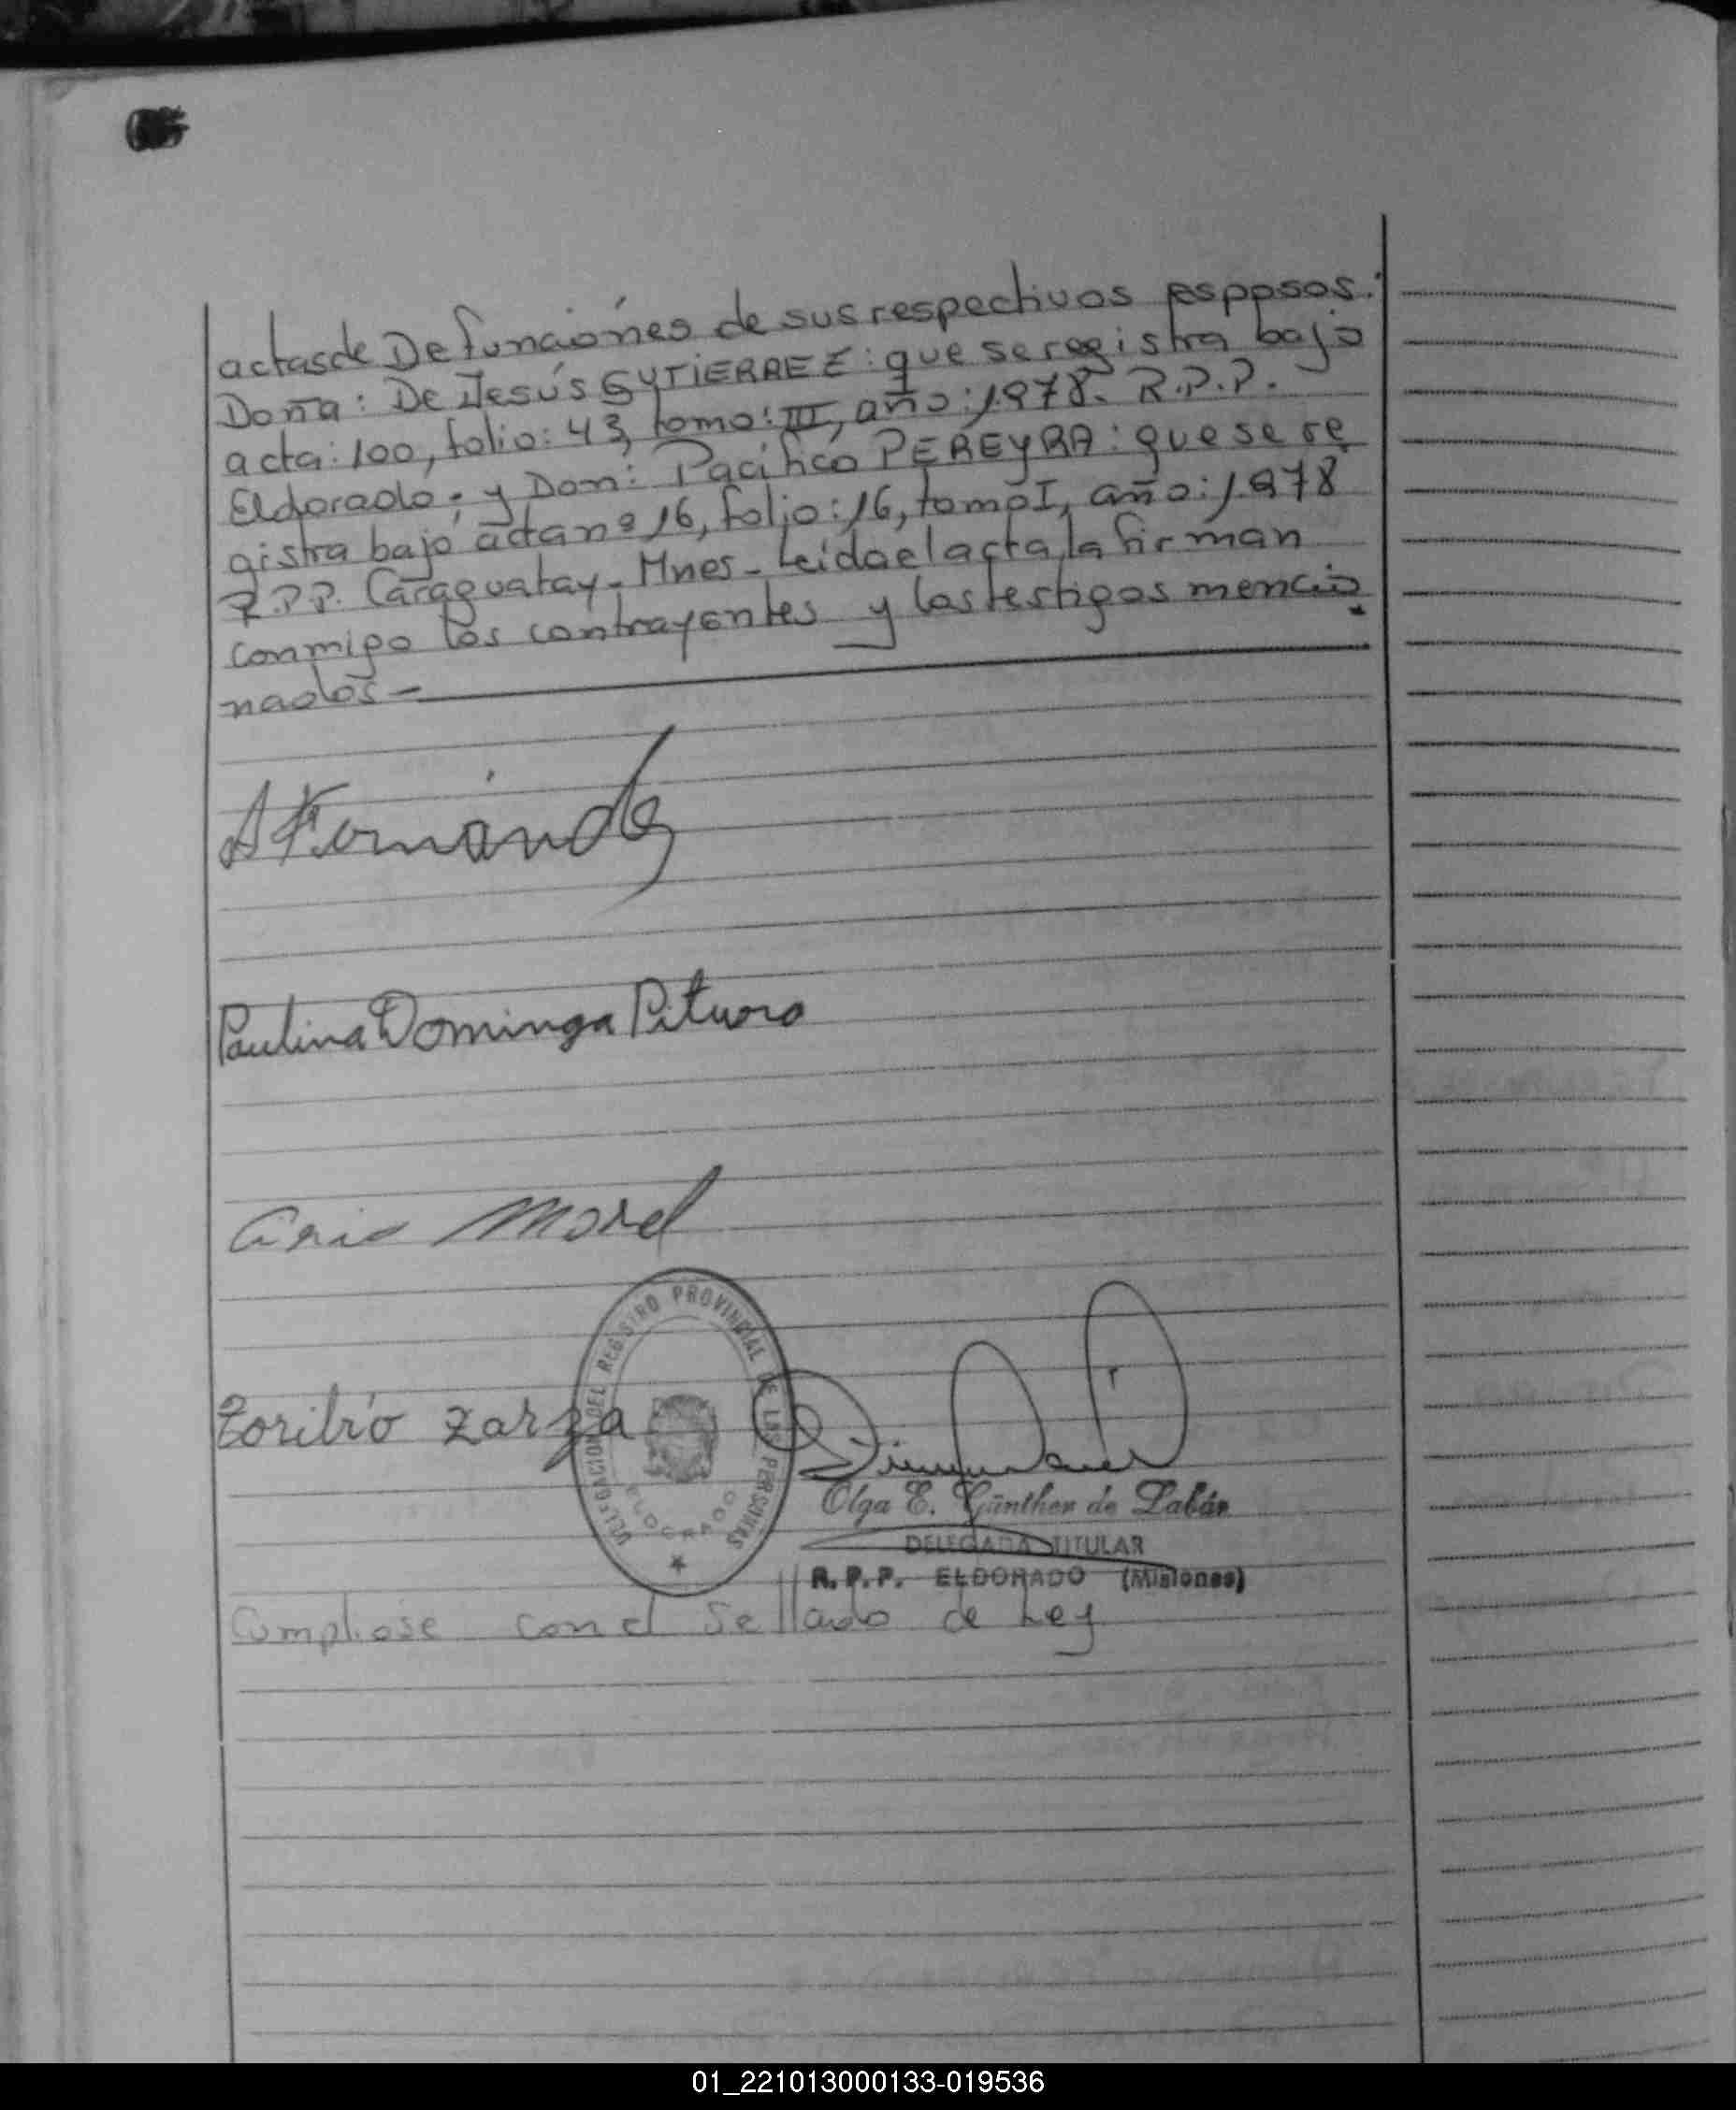 actas de Defunciónes de sus respectivos esposos:
Doña: De Jesús GUTIERREZ: que se registra bajo
acta: 100, folio: 43, tomo: III, año: 1.978. R.P.P.
Eldorado; y Don: Pacífico PEREYRA: que se re
gistra bajo acta nº 16, folio: 16, tomo I, año: 1.978
R.P.P. Caraguatay - Mnes - Leida el acta, la firman
conmigo los contrayentes y los testigos mencio
nados -
A Fernández
Paulina Dominga Pituora
Morel
Toribio Zarza
DELEGACION DEL REGISTRO PROVINCIAL DE LAS PERSONAS
ELDORADO
Olga E. Günther de Labár
DELEGADA TITULAR
R.P.P. ELDORADO (Misiones)
Cumpliose con el Sellado de Ley
01_221013000133-019536